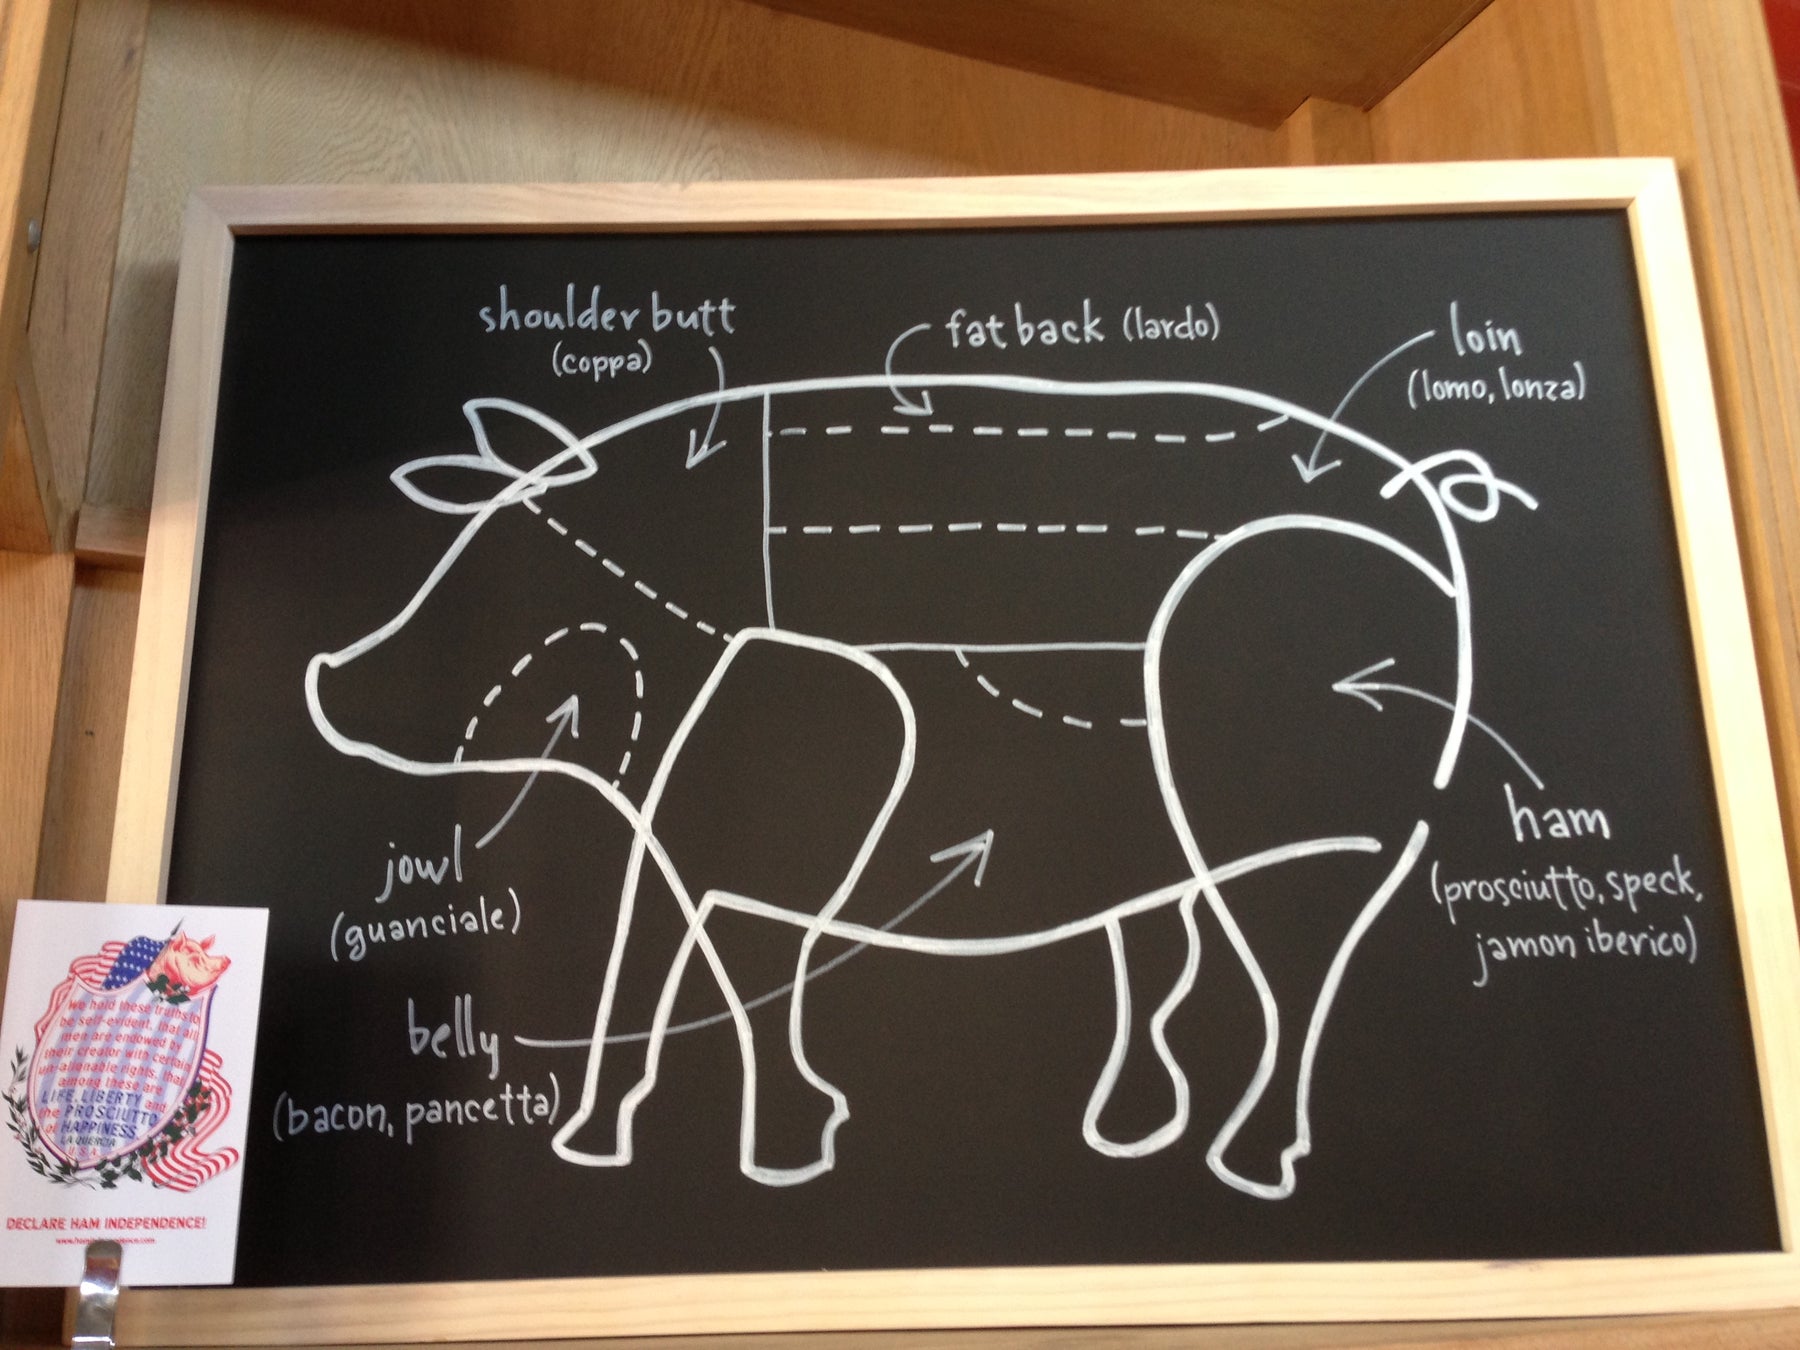 shoulder butt
(coppa)
fat back (lardo)
loin
(lomo, lonza)
jowl
(guanciale)
ham
(prosciutto, speck,
jamon iberico)
belly
(bacon, pancetta)
We hold these truths to
be self-evident, that all
men are endowed by
their creator with certain
un-alienable rights, that
among these are
LIFE, LIBERTY and
the PROSCIUTTO
of HAPPINESS.
LA QUERCIA
U.S.A.
DECLARE HAM INDEPENDENCE!